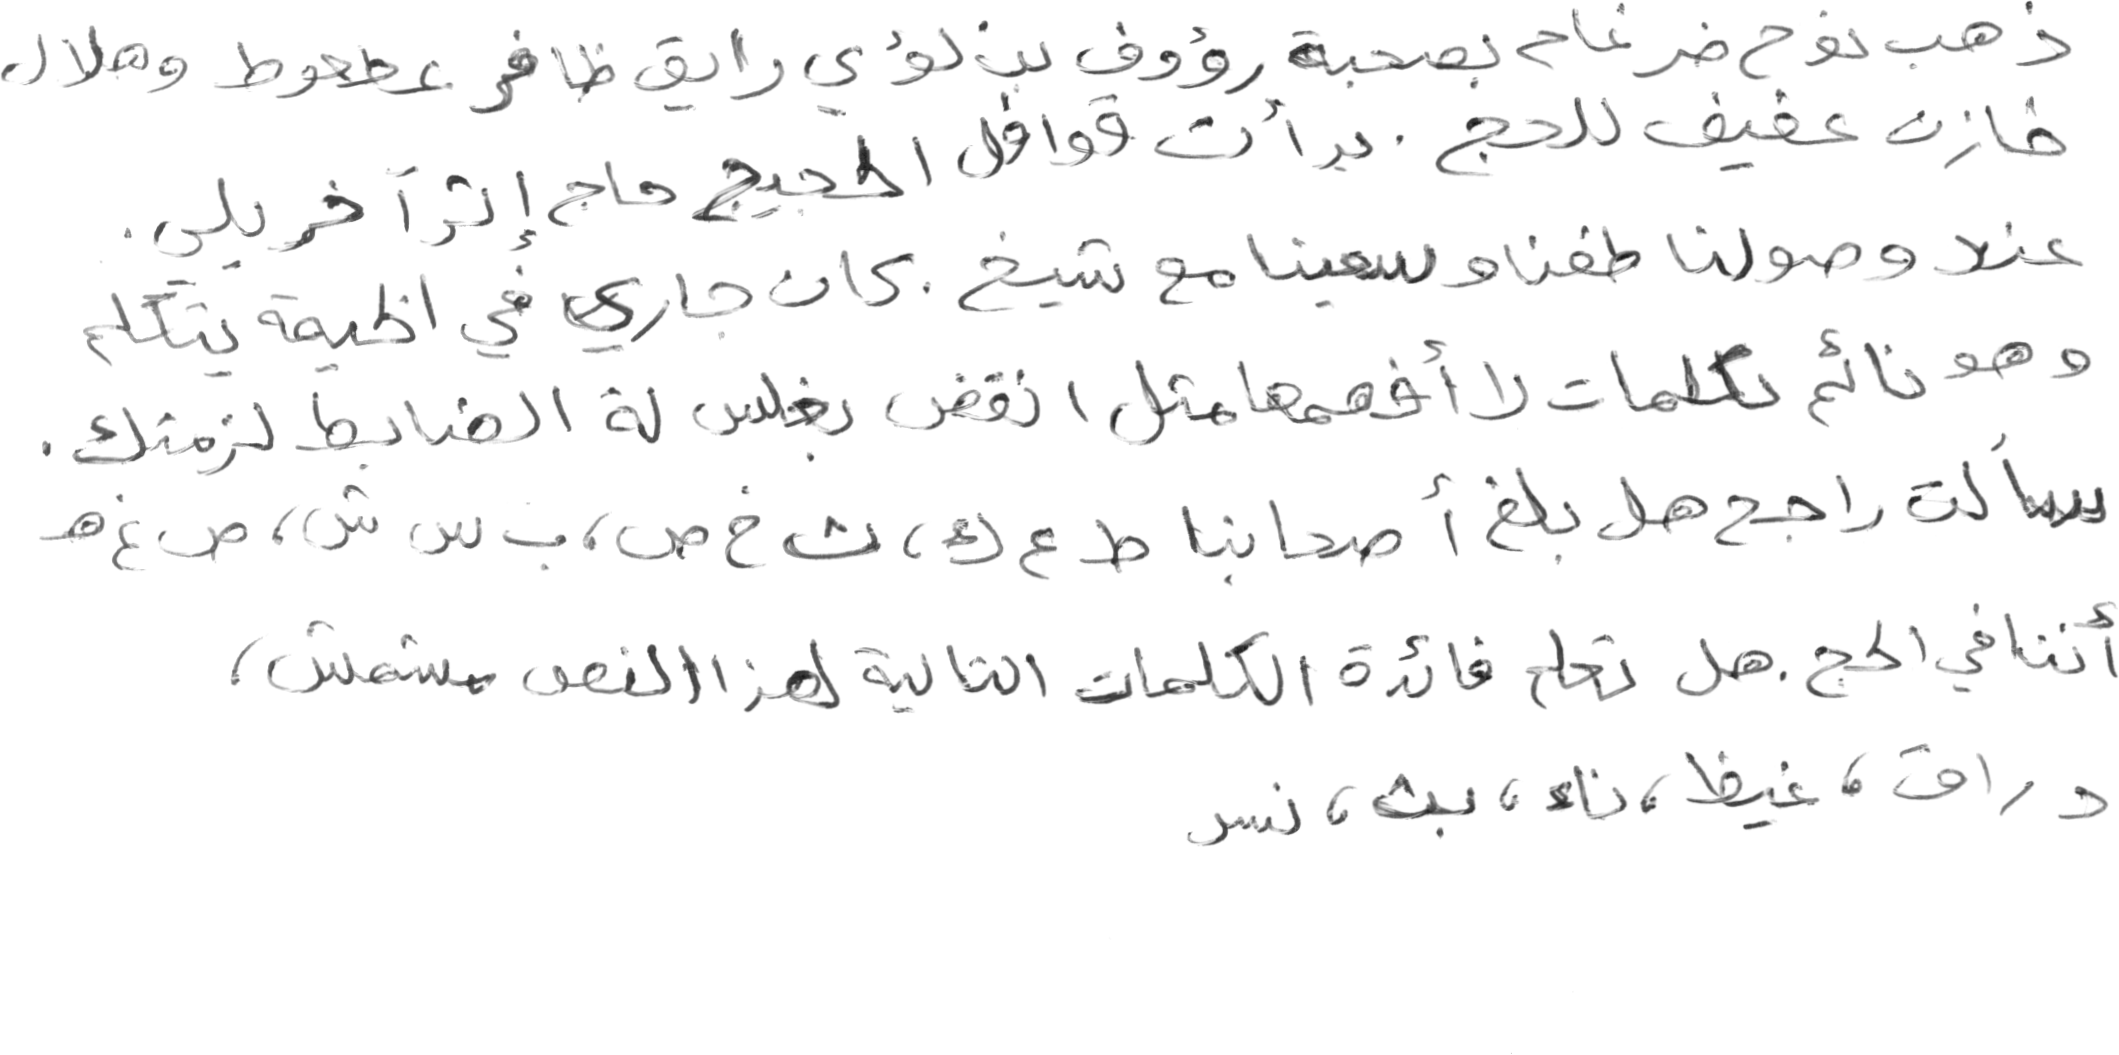 ذهب نوح ضرغام بصحبة رؤوف بن لؤي رايق ظافر عطعوط وهلال
خازن عفيف للحج . بدأت قوافل الحجيج حاج إثر آخر يلبي .
عند وصولنا طفنا وسعينا مع شيخ . كان جاري في الخيمة يتكلم
وهو نائم بكلمات لا أفهمها مثل انقض بغلس لة الضابط لزمتك .
سألت راجح هل بلغ أصحابنا ط ع ك ، ث خ ص ، ب س ش ، ص غ هـ
أننا في الحج . هل تعلم فائدة الكلمات التالية لهذا النص مشمش ،
دراق ، غيظ ، ناء ، بث ، نسر